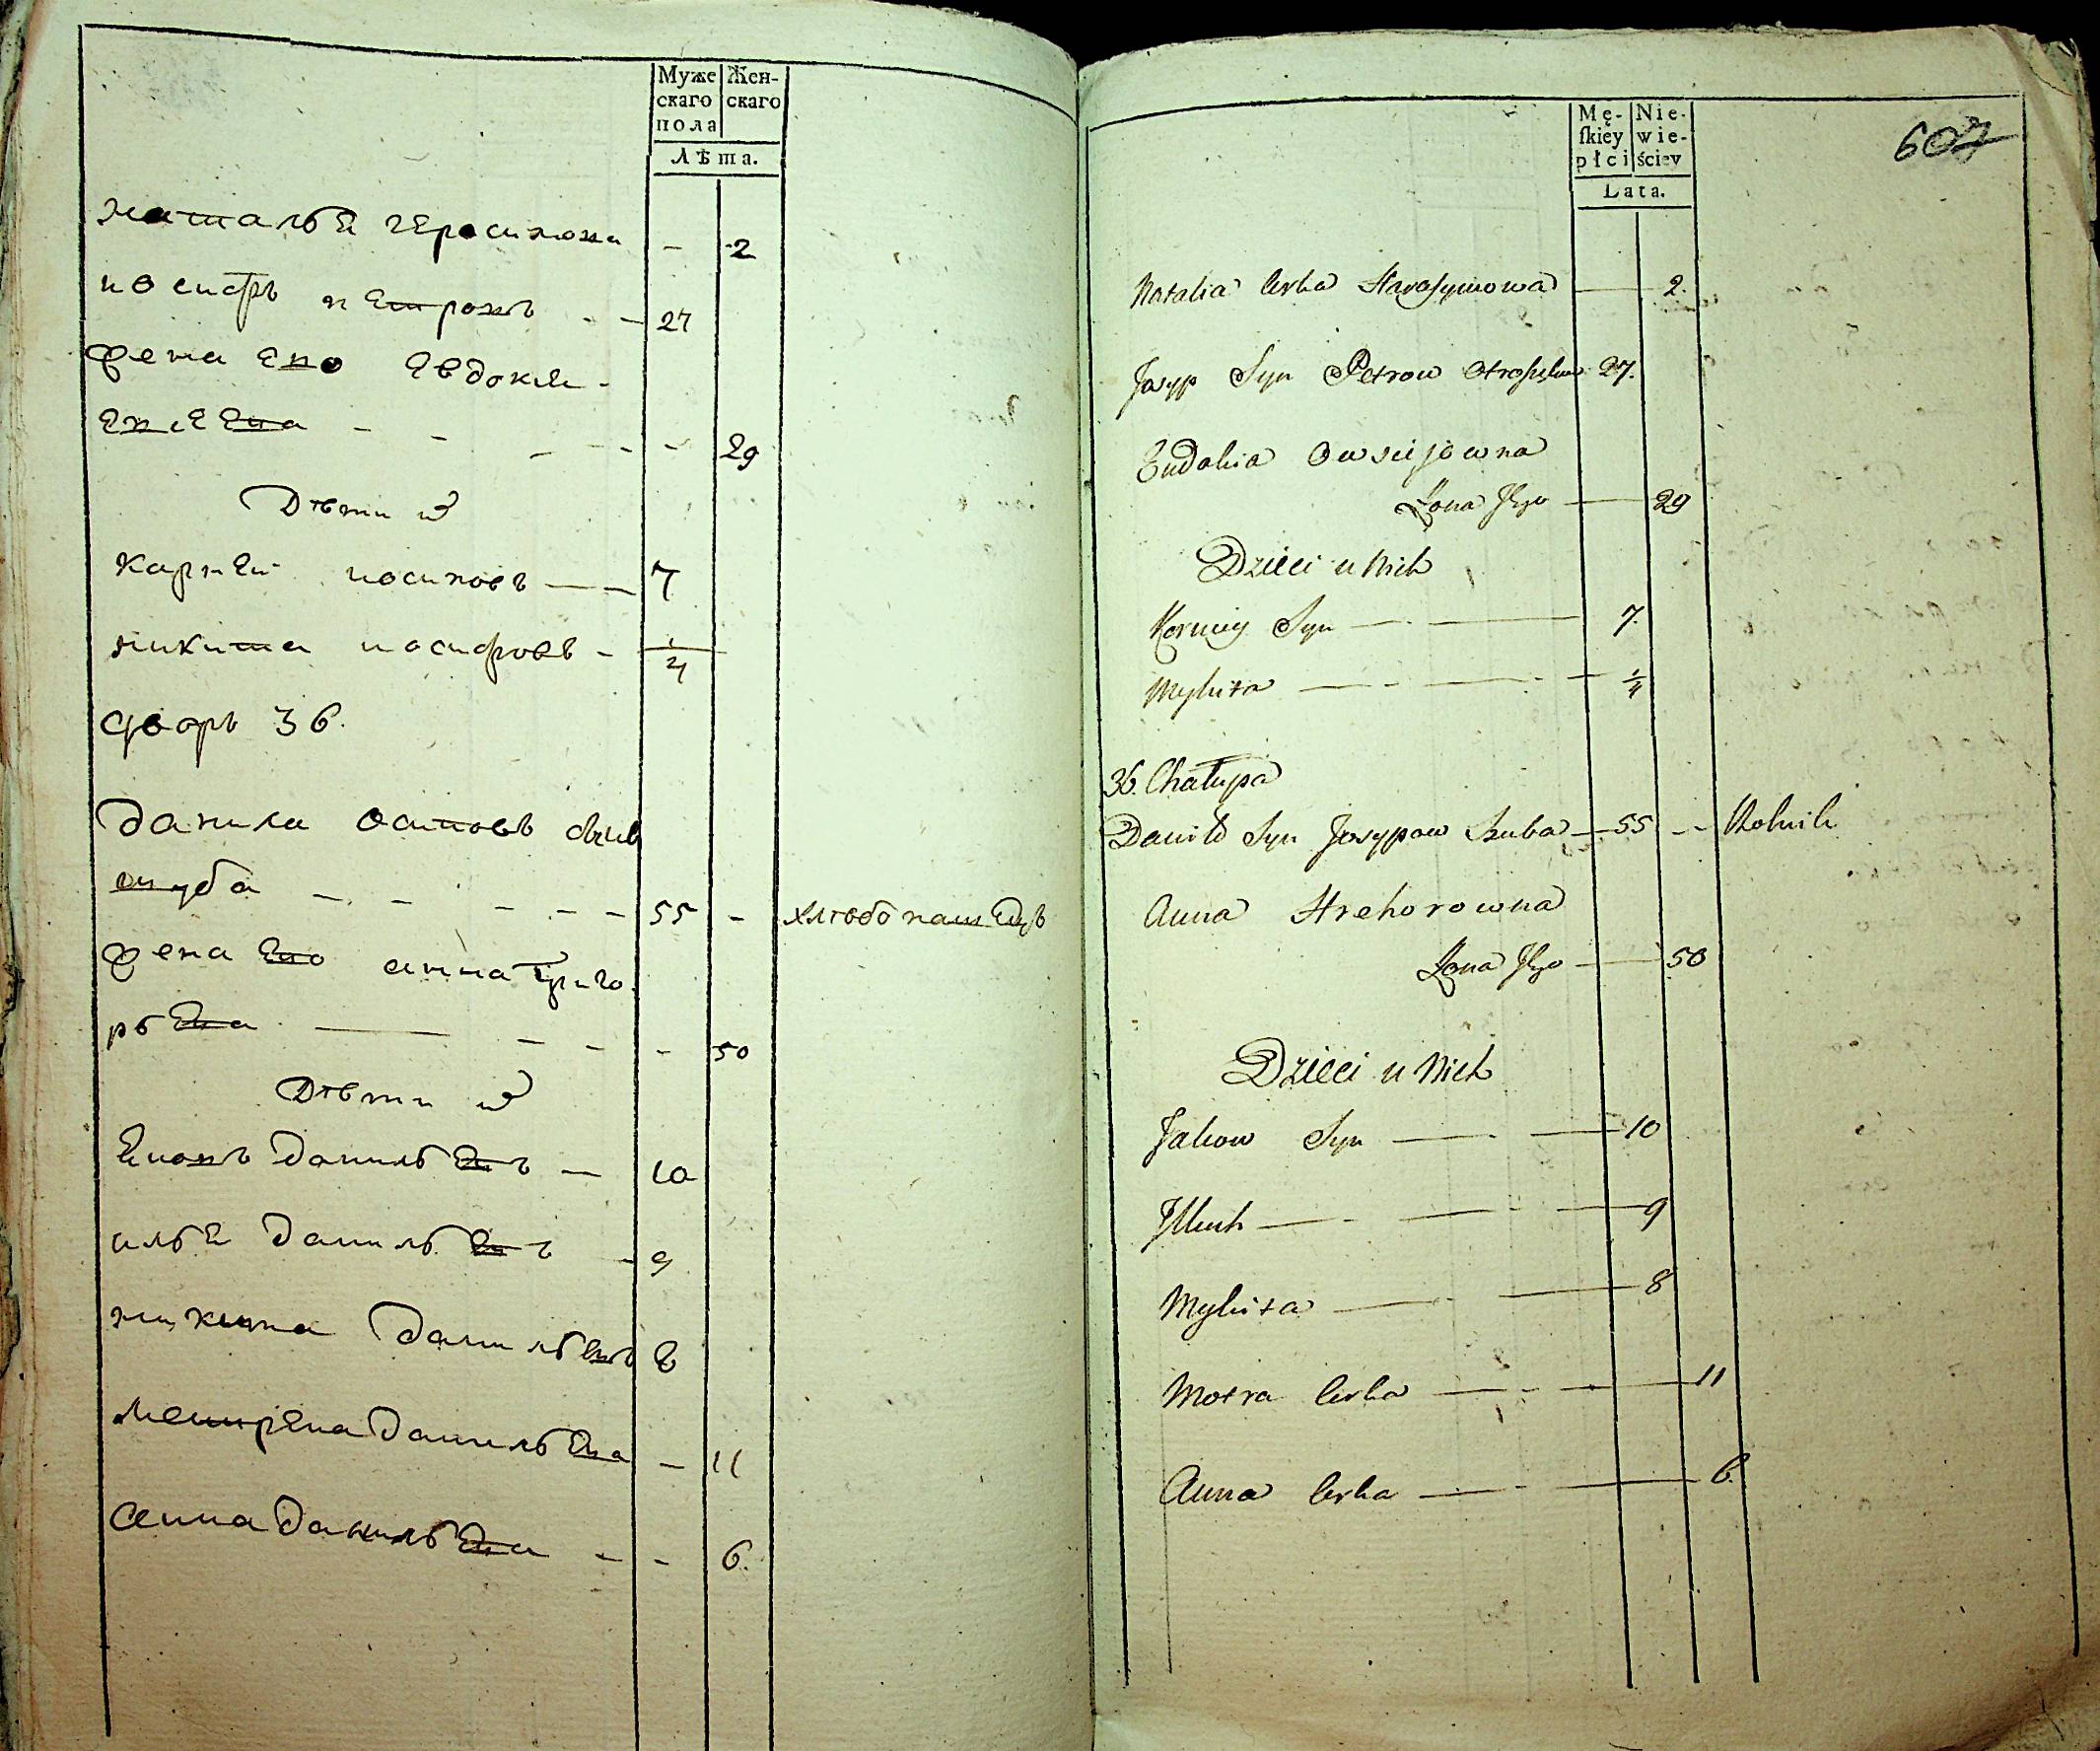 Муже Жен-
скаго скаго
пола
Лѣта.
наталья герасимова - 2
иосифъ петровъ - - 27
жена Ево Евдокия
Евсеева - - - - - 29
Дѣти их
карпей иосиповъ — 7
никита иосифовъ - 1/4
дворъ 36.
данила осиповъ сынъ
шуба - - - - - 55 - хлѣбопашецъ
жена Ево анна григо
рьева — - - - 50
Дѣти их
Яковъ данильевъ — 10
илья данильевъ - 9
никита данильевъ 8
матрена данильева - 11
анна данильева - - 6.
607
Mę- Nie-
ſkiey wie-
płci ściey
Lata.
Natalia Corka Harasymowa — 2.
Josyp Syn Petrow 27.
Eudokia Owsiejowna
Żona Jego — 29
Dzieci u Nich
Korniey Syn — 7.
Mykita — 1/4
36. Chałupa
Daniło Syn Josypow Szuba — 55 - - Rolnik
Anna Hrehorowna
Żona Jego — 50
Dzieci u Nich
Jakow Syn — 10
Illuk — 9
Mykita — 8
Motra Corka — 11
Anna Corka — 6.